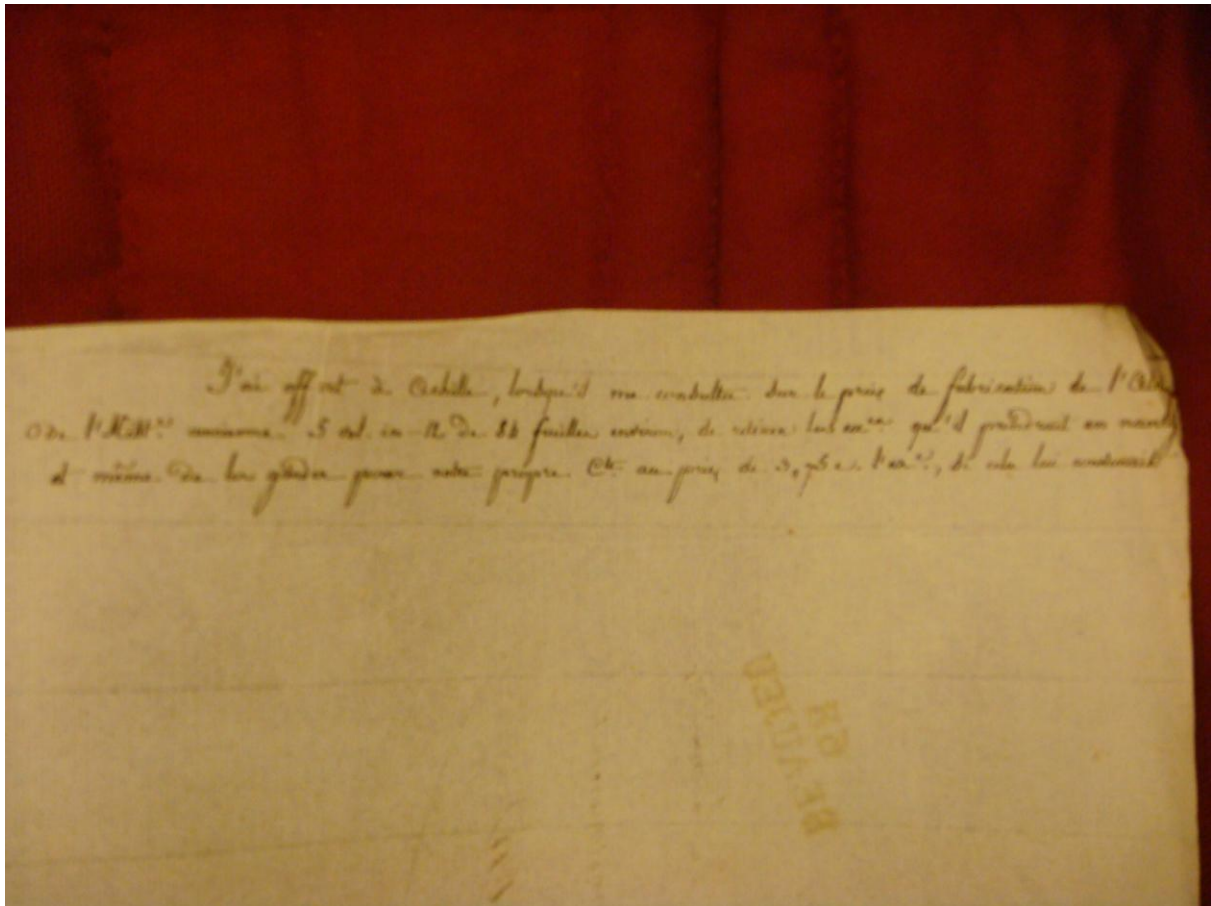 J'ai offert à Achille, lorsqu'il me consulta sur le prix de fabrication de
de l'Hist.re ancienne 5 vol. in-12 de 84 feuilles environ, de retirer les ex.res qu'il prendrait en
et même de les garder pour notre propre C.te au prix de 3,75 c l'ex.re, si cela lui convenait
69
BEAUJEU